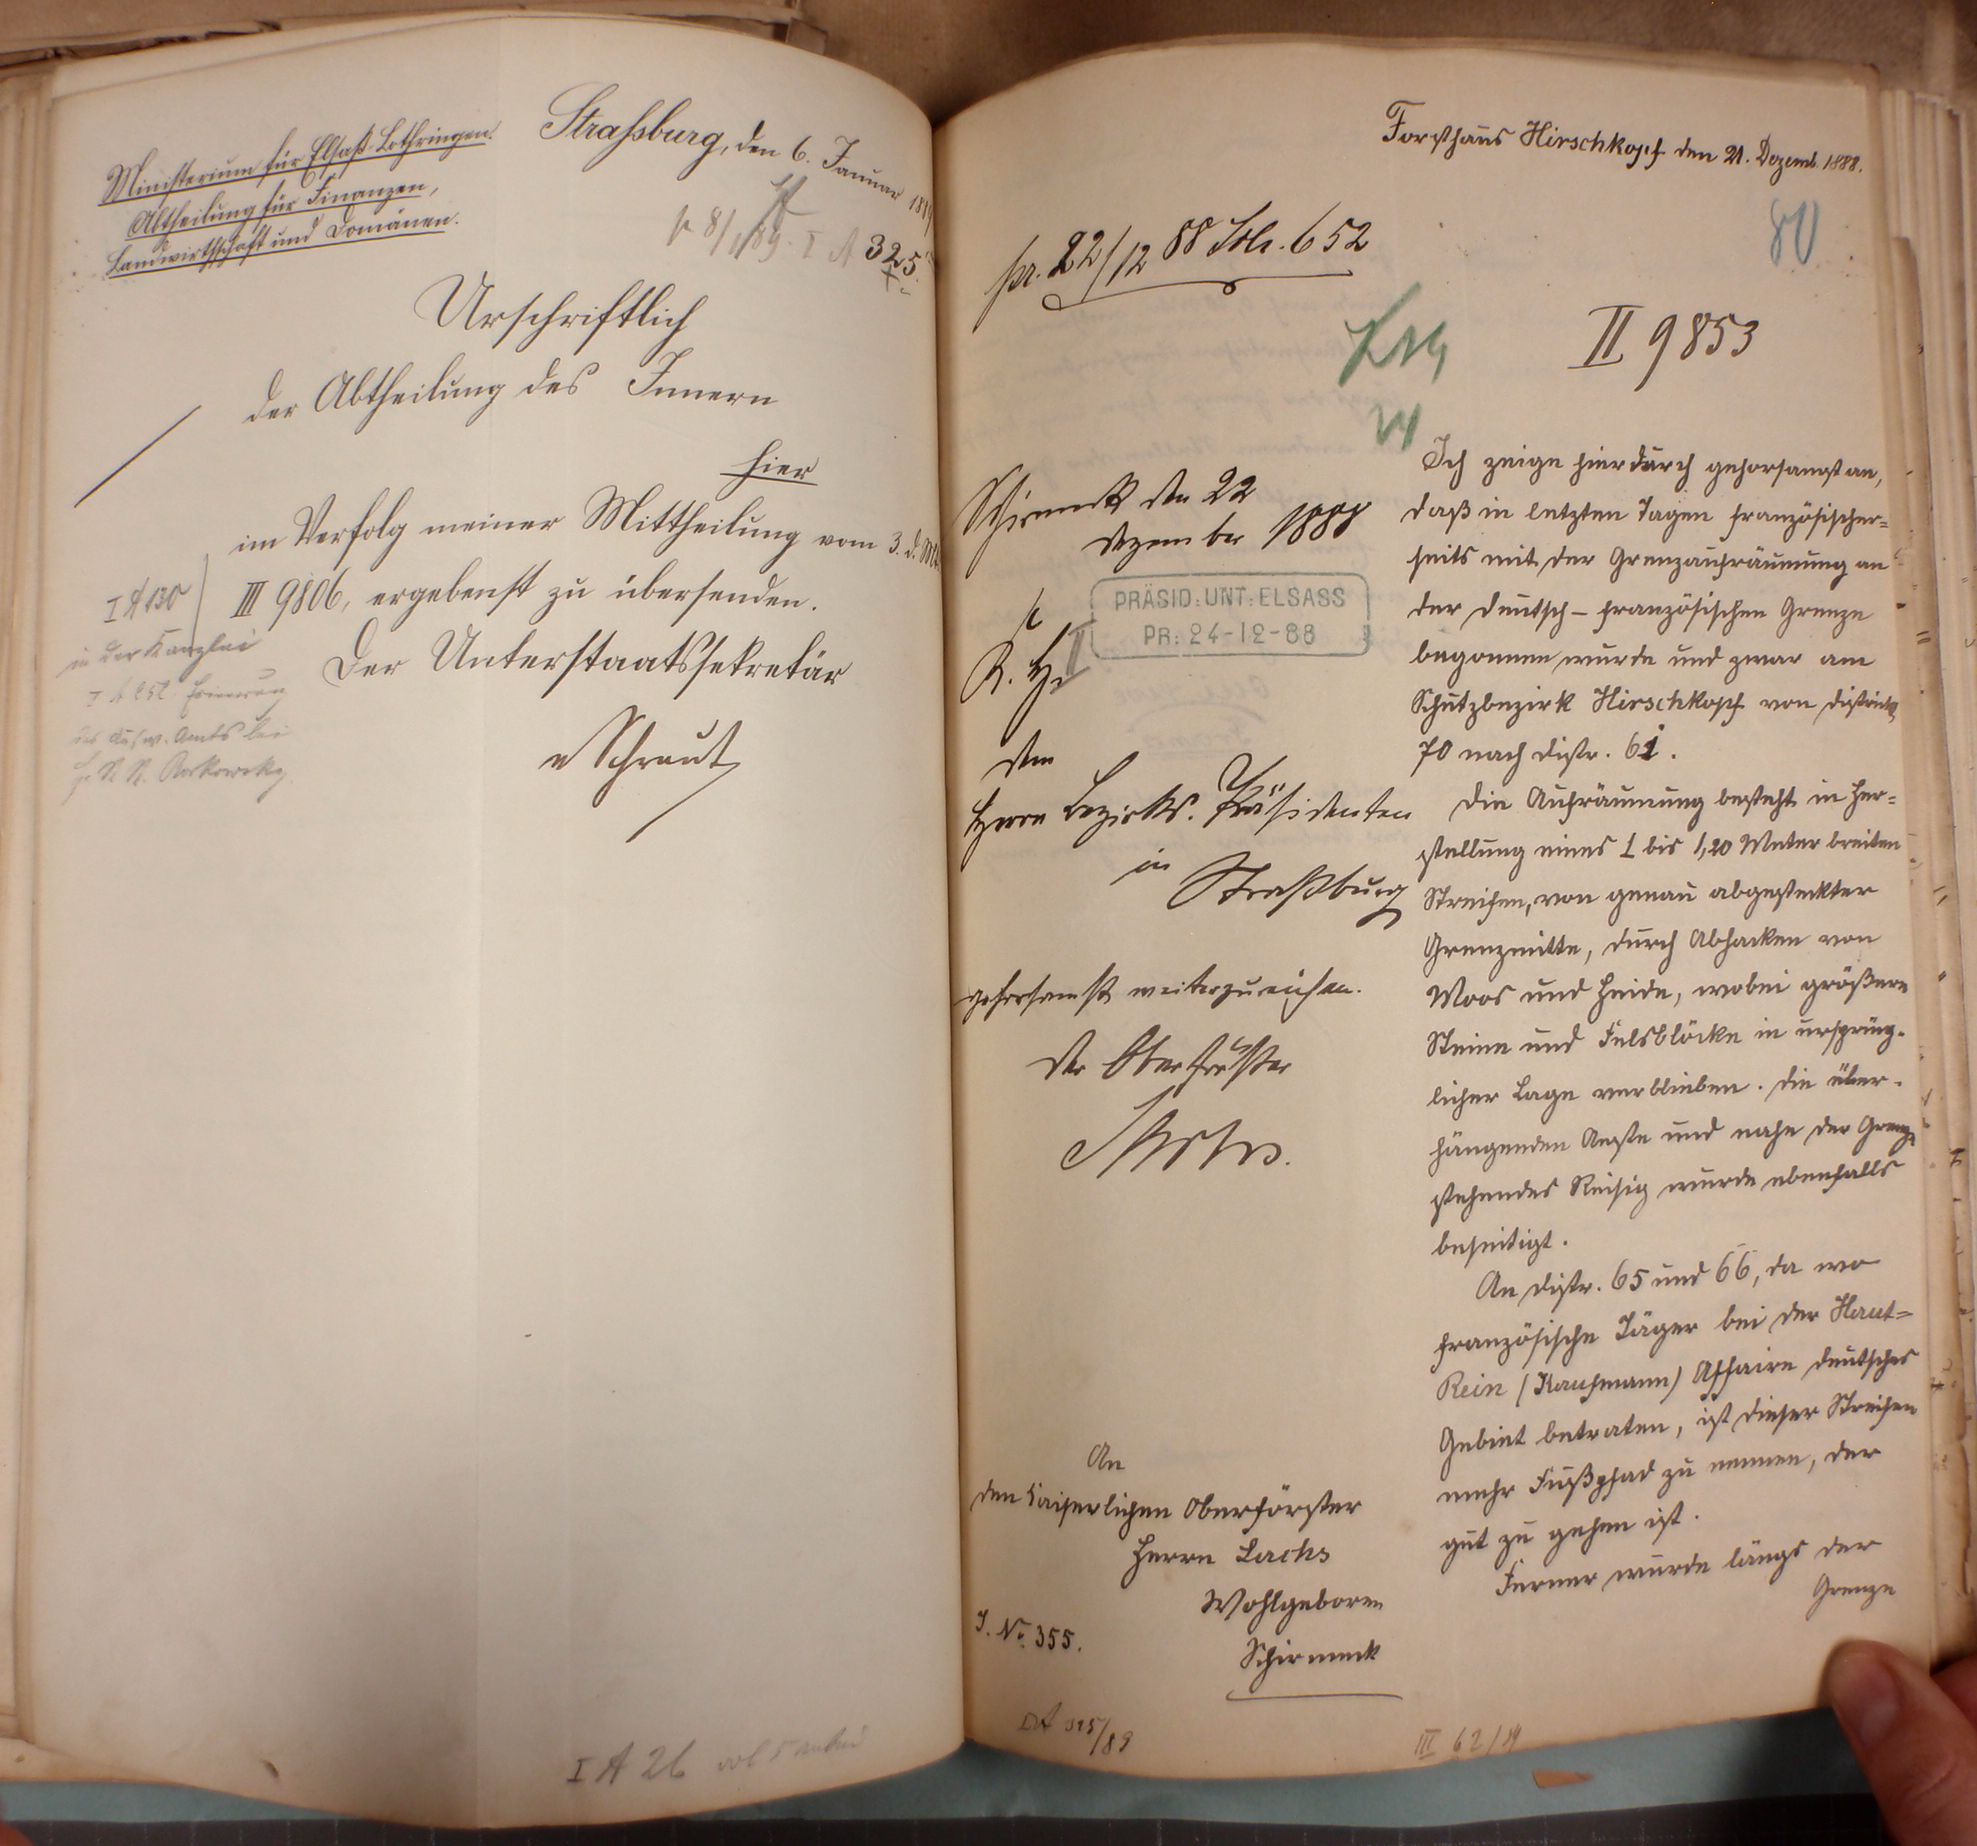 Ministerium für Elsaß-Lothringen.
Abtheilung für Finanzen,
Landwirthschaft und Domänen.
Straßburg, den 6. Januar 1889
pr 8/1 89. I A 325.
Urschriftlich
der Abtheilung des Innern
hier
im Verfolg meiner Mittheilung vom 3. d. Mts.
III 9806, ergebenst zu übersenden.
Der Unterstaatssekretär
v Schraut
I A 130
in der Kanzlei
I A 252 Erinnerung
des Ausw. Amts bei
I A 26
Forsthaus Hirschkopf den 21. Dezemb. 1888.
pr. 22/12 88 Nr. 652
80
II 9853
Schirmeck den 22
Dezember 1888
PRÄSID: UNT: ELSASS
PR: 24-12-88
K. H.
dem
Herrn Bezirks-Präsidenten
in
Straßburg
gehorsamst weiterzureichen.
Der Oberförster
An
den Kaiserlichen Oberförster
Herrn Lachs
Wohlgeboren
J. No. 355.
Schirmeck
I A 325/89
Ich zeige hierdurch gehorsamst an,
daß in letzten Tagen französischer=
seits mit der Grenzaufräumung an
der deutsch-französischen Grenze
begonnen wurde und zwar am
Schutzbezirk Hirschkopf von District
70 nach Distr. 61.
Die Aufräumung besteht in Her=
stellung eines 1 bis 1,20 Meter breiten
Streifen, von genau abgesteckter
Grenzmitte, durch Abhacken von
Moos und Heide, wobei größere
Steine und Felsblöcke in ursprüng-
licher Lage verblieben. Die über-
hängenden Aeste und nahe der Grenze
stehendes Reisig wurde ebenfalls
beseitigt.
An Distr. 65 und 66, da wo
französische Jäger bei der Haut=
Rein (Kaufmann) Affaire deutsches
Gebiet betraten, ist dieser Streifen
mehr Fußpfad zu nennen, der
gut zu gehen ist.
Ferner wurde längs der
Grenze
III 62/89